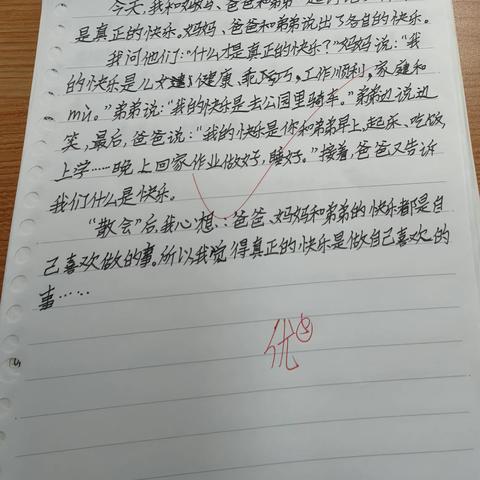 今天,我和妈妈、爸爸和弟弟一起讨论
是真正的快乐。妈妈、爸爸和弟弟说出了各自的快乐。
我问他们:“什么才是真正的快乐?”妈妈说:“我
的快乐是儿女健康、乖巧,工作顺利,家庭和
mù。”弟弟说:“我的快乐是去公园里骑车。”弟弟边说边
笑,最后,爸爸说:“我的快乐是你和弟弟早上起床、吃饭,
上学……晚上回家作业做好,睡好。”接着,爸爸又告诉
我们什么是快乐。
“散会”后,我心想:爸爸、妈妈和弟弟的快乐都是自
己喜欢做的事。所以我觉得真正的快乐是做自己喜欢的
事……
优